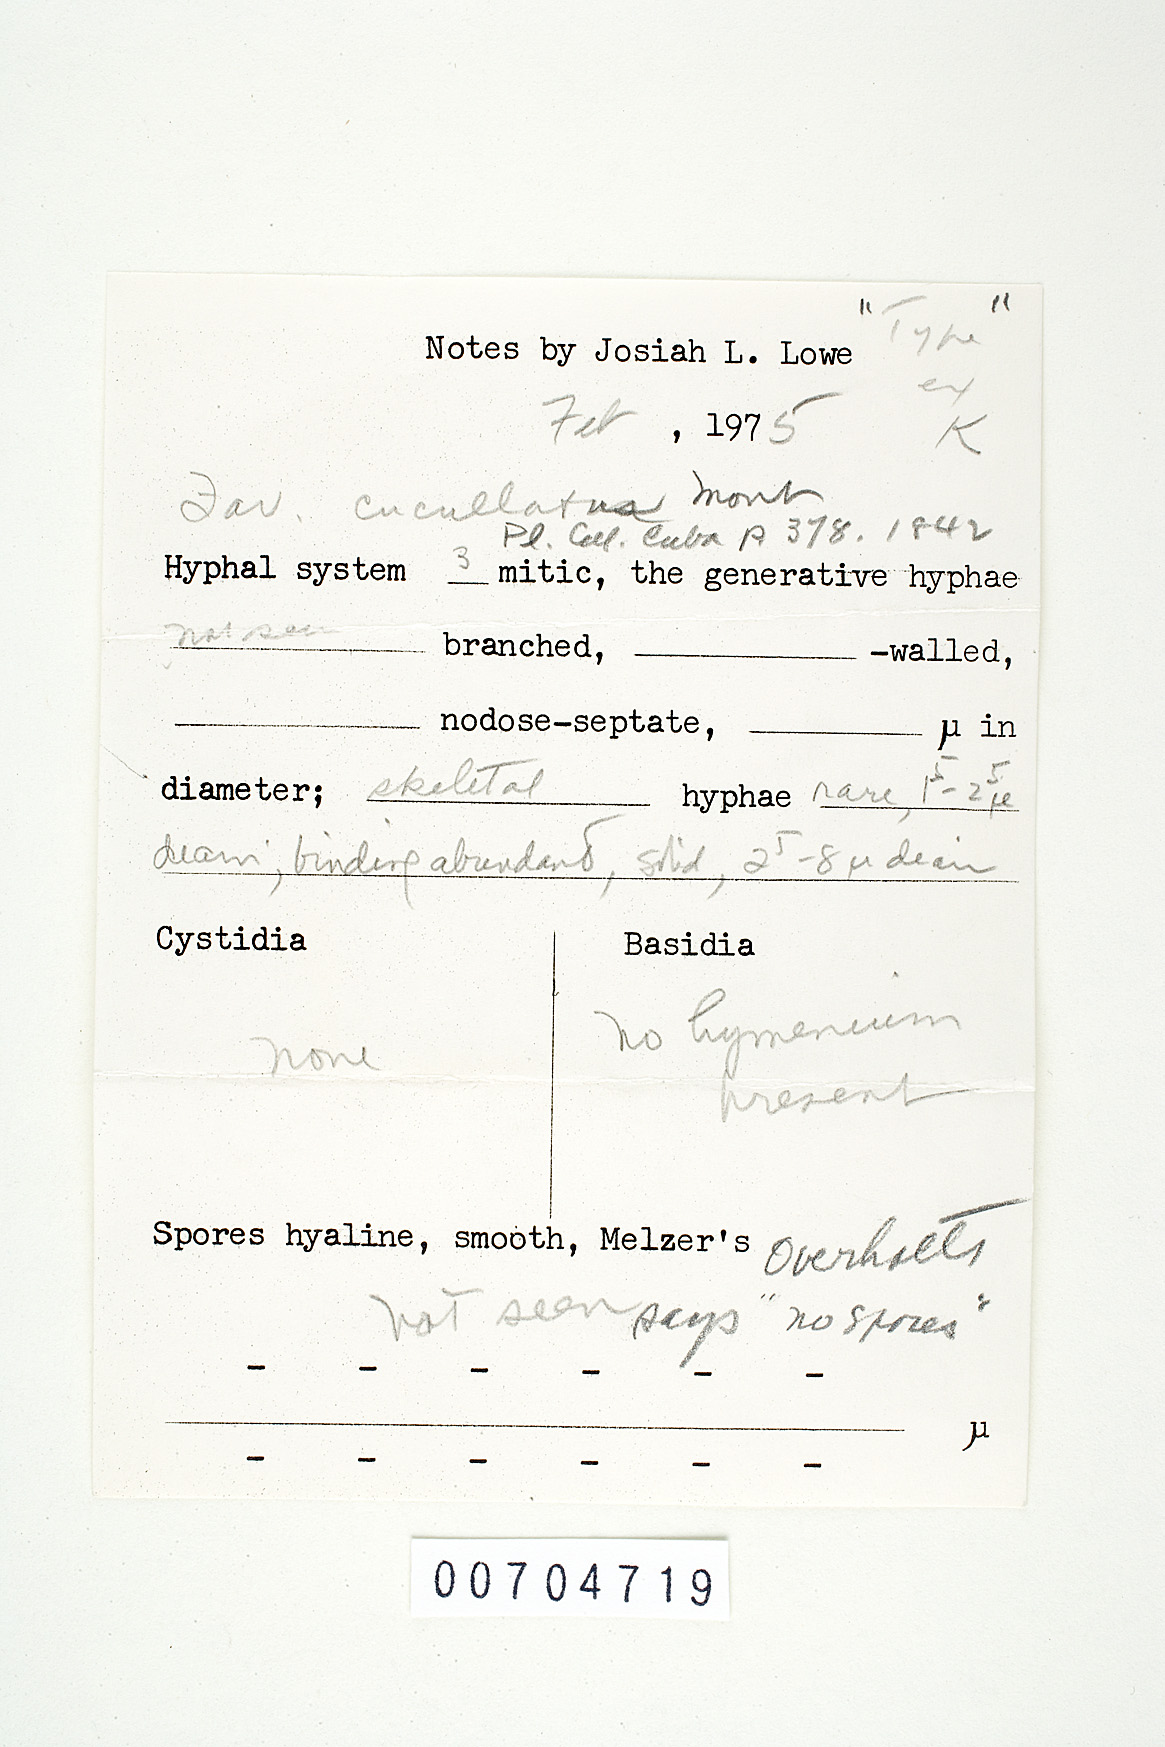 Notes by Josiah L. Lowe "Type"
ex
Feb , 1975 K
Fav. cucullatus Mont
Pl. Cell. Cuba p 378. 1842
Hyphal system 3 mitic, the generative hyphae
not seen branched, -walled,
nodose-septate, µ in
diameter; skeletal hyphae rare, 1⁵-2⁵µ
diam; binding abundant, solid, 2⁵-8 µ diam
Cystidia Basidia
none no hymenium
present
Spores hyaline, smooth, Melzer's Overholts
not seen says "no spores"
- - - - - -
µ
- - - - - -
00704719